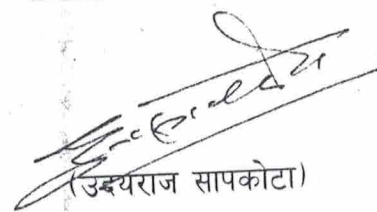 (उद्दयराज सापकोटा)